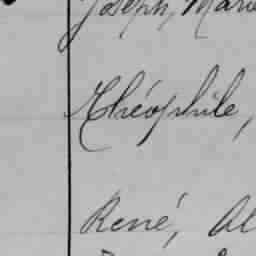 Joseph, Marie
Théophile,
René, Al